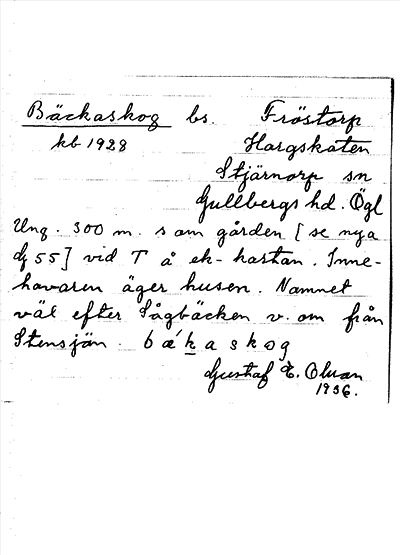 Bäckaskog bs. Fröstorp
kb 1928 Hargskaten
Stjärnorp sn
Gullbergs hd. Ögl
Ung. 300 m. s om gården [se nya
dj 55] vid T å ek-kartan. Inne-
havaren äger husen. Namnet
väl efter Sågbäcken v. om från
Stensjön. bǽkaskog
Gustaf E. Olsson
1936.